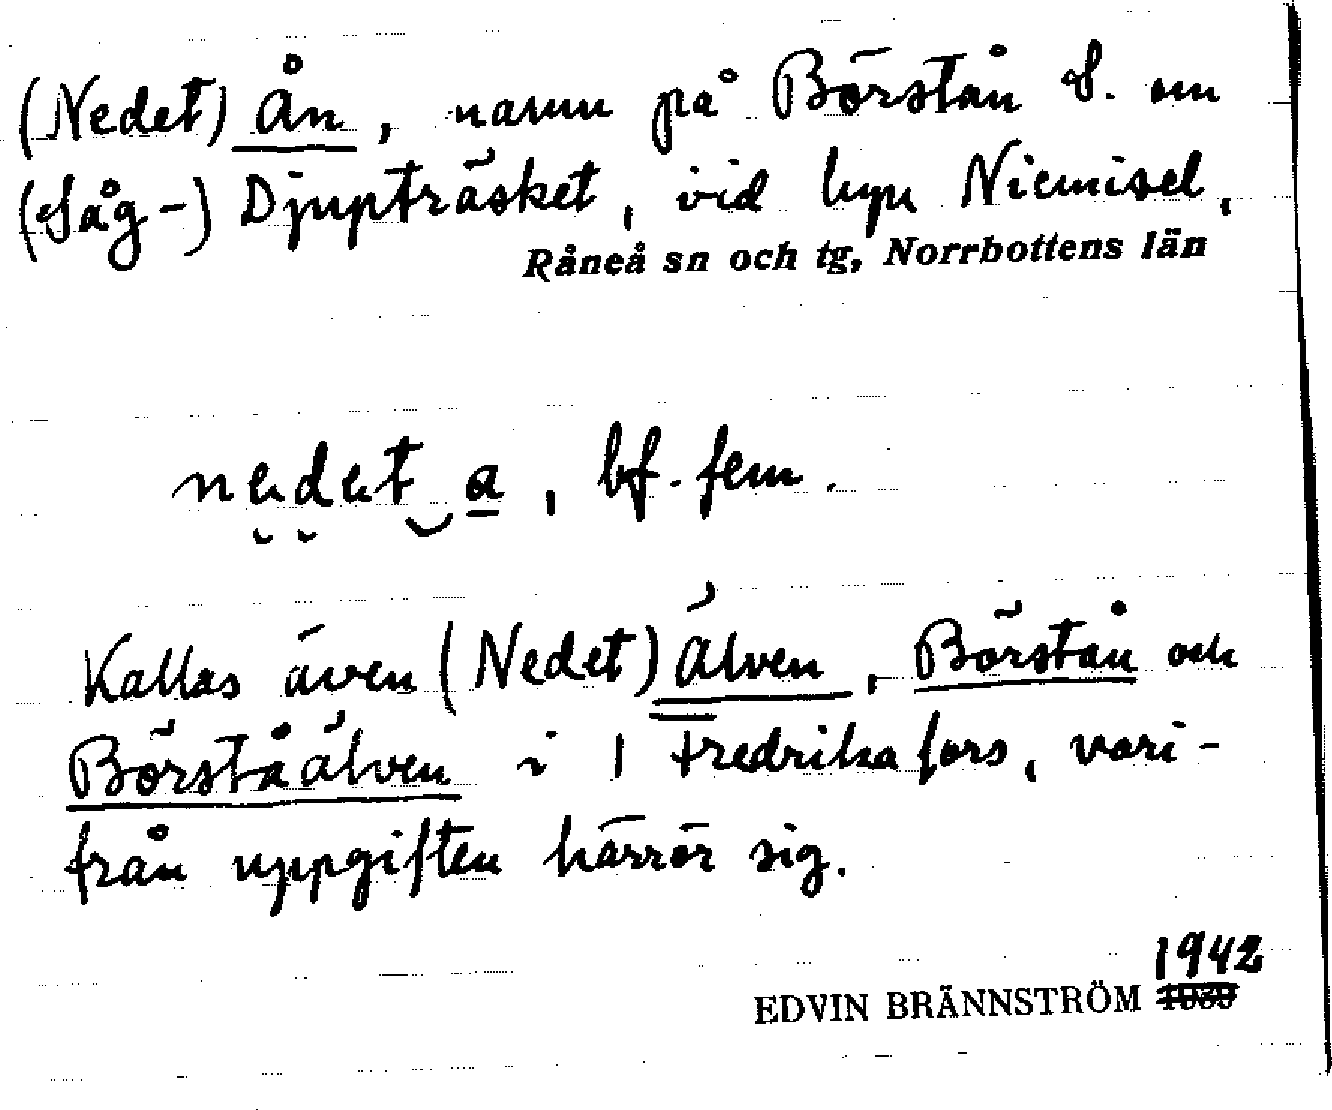 (Nedet) Ån, namn på Börstån S. om
(Såg-) Djupträsket, vid byn Niemisel,
Råneå sn och tg, Norrbottens län
nedet‿a, bf. fem.
Kallas även (Nedet) Älven, Börstån och
Börstååälven i 1 Fredrikafors, vari-
från uppgiften härrör sig.
1942
EDVIN BRÄNNSTRÖM 1939